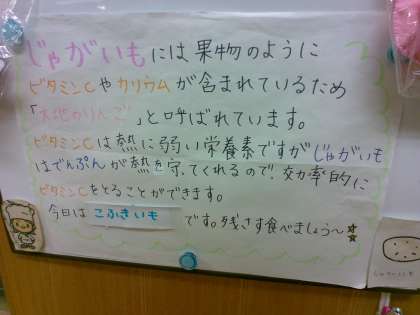 じゃがいもには果物のように
ビタミンCやカリウムが含まれているため
「大地のりんご」と呼ばれています。
ビタミンCは熱に弱い栄養素ですがじゃがいも
はでんぷんが熱を守ってくれるので、効率的に
ビタミンCをとることができます。
今日は こふきいも です。残さず食べましょう〜